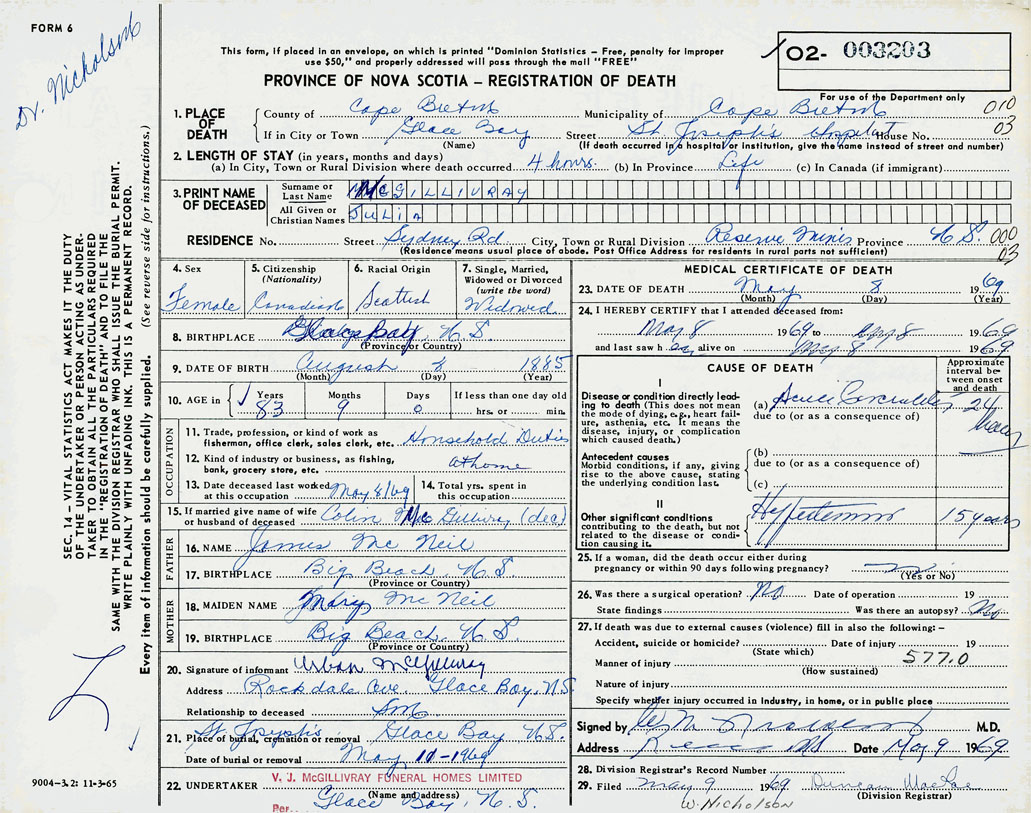 FORM 6
Dr. Nicholson
This form, if placed in an envelope, on which is printed "Dominion Statistics – Free, penalty for improper
use $50," and properly addressed will pass through the mail "FREE"
PROVINCE OF NOVA SCOTIA – REGISTRATION OF DEATH
02- 003203
For use of the Department only
010
03
1. PLACE OF DEATH
County of Cape Breton Municipality of Cape Breton
If in City or Town Glace Bay Street St Joseph's Hospital House No.
(Name) (If death occurred in a hospital or institution, give the name instead of street and number)
2. LENGTH OF STAY (in years, months and days)
(a) In City, Town or Rural Division where death occurred 4 hours. (b) In Province Life (c) In Canada (if immigrant)
3. PRINT NAME OF DECEASED
Surname or Last Name McGILLIVRAY
All Given or Christian Names JULIA
RESIDENCE No. Street Sydney Rd. City, Town or Rural Division Reserve Mines Province N.S. 000
(Residence means usual place of abode. Post Office Address for residents in rural parts not sufficient) 03
4. Sex
Female
5. Citizenship
(Nationality)
Canadian
6. Racial Origin
Scottish
7. Single, Married,
Widowed or Divorced
(write the word)
Widowed
8. BIRTHPLACE Glace Bay, N.S.
(Province or Country)
9. DATE OF BIRTH August 8 1885
(Month) (Day) (Year)
10. AGE in
Years Months Days If less than one day old
83 9 0 hrs. or min.
OCCUPATION
11. Trade, profession, or kind of work as
fisherman, office clerk, sales clerk, etc. Household Duties
12. Kind of industry or business, as fishing,
bank, grocery store, etc. at home
13. Date deceased last worked
at this occupation May 8/69
14. Total yrs. spent in
this occupation
15. If married give name of wife
or husband of deceased Colin (dec)
FATHER
16. NAME James Mc Neil
17. BIRTHPLACE Big Beach, N.S.
(Province or Country)
MOTHER
18. MAIDEN NAME Mary Mc Neil
19. BIRTHPLACE Big Beach, N.S.
(Province or Country)
20. Signature of informant Urban
Address Rockdale Ave. Glace Bay, N.S.
Relationship to deceased Son
21. Place of burial, cremation or removal St. Joseph's Glace Bay N.S.
Date of burial or removal May 10-1969
22. UNDERTAKER V. J. McGILLIVRAY FUNERAL HOMES LIMITED
(Name and address)
Per. Glace Bay, N.S.
MEDICAL CERTIFICATE OF DEATH
23. DATE OF DEATH May 8 1969
(Month) (Day) (Year)
24. I HEREBY CERTIFY that I attended deceased from:
May 8 1969 to May 8 1969
and last saw her alive on May 8 1969
CAUSE OF DEATH
Approximate
interval be-
tween onset
and death
I
Disease or condition directly lead-
ing to death (This does not
mean the mode of dying, e.g., heart fail-
ure, asthenia, etc. It means the
disease, injury, or complication
which caused death.)
(a) Acute 24
due to (or as a consequence of) hours
Antecedent causes
Morbid conditions, if any, giving
rise to the above cause, stating
the underlying condition last.
(b)
due to (or as a consequence of)
(c)
II
Other significant conditions
contributing to the death, but not
related to the disease or condi-
tion causing it.
Hypertension 15 years
25. If a woman, did the death occur either during
pregnancy or within 90 days following pregnancy? no
(Yes or No)
26. Was there a surgical operation? No Date of operation 19
State findings Was there an autopsy? No
27. If death was due to external causes (violence) fill in also the following: –
Accident, suicide or homicide? Date of injury 19
(State which) 577.0
Manner of injury
(How sustained)
Nature of injury
Specify whether injury occurred in industry, in home, or in public place
Signed by M.D.
Address Date May 9 1969
28. Division Registrar's Record Number
29. Filed May 9 1969 Duncan MacRae
(Division Registrar)
W. Nicholson
SEC. 14 – VITAL STATISTICS ACT MAKES IT THE DUTY
OF THE UNDERTAKER OR PERSON ACTING AS UNDER-
TAKER TO OBTAIN ALL THE PARTICULARS REQUIRED
IN THE "REGISTRATION OF DEATH" AND TO FILE THE
SAME WITH THE DIVISION REGISTRAR WHO SHALL ISSUE THE BURIAL PERMIT.
WRITE PLAINLY WITH UNFADING INK. THIS IS A PERMANENT RECORD.
Every item of information should be carefully supplied. (See reverse side for instructions.)
9004-3.2: 11-3-65